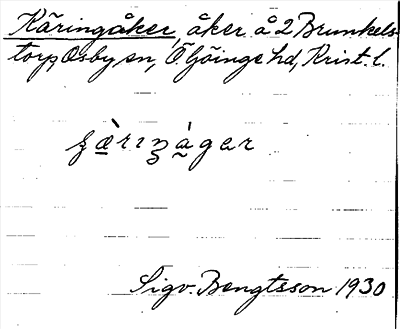 Käringåker, åker å 2 Brunkels-
torp, Osby sn, Ö Göinge hd, Krist. l.
Sigv. Bengtsson 1930